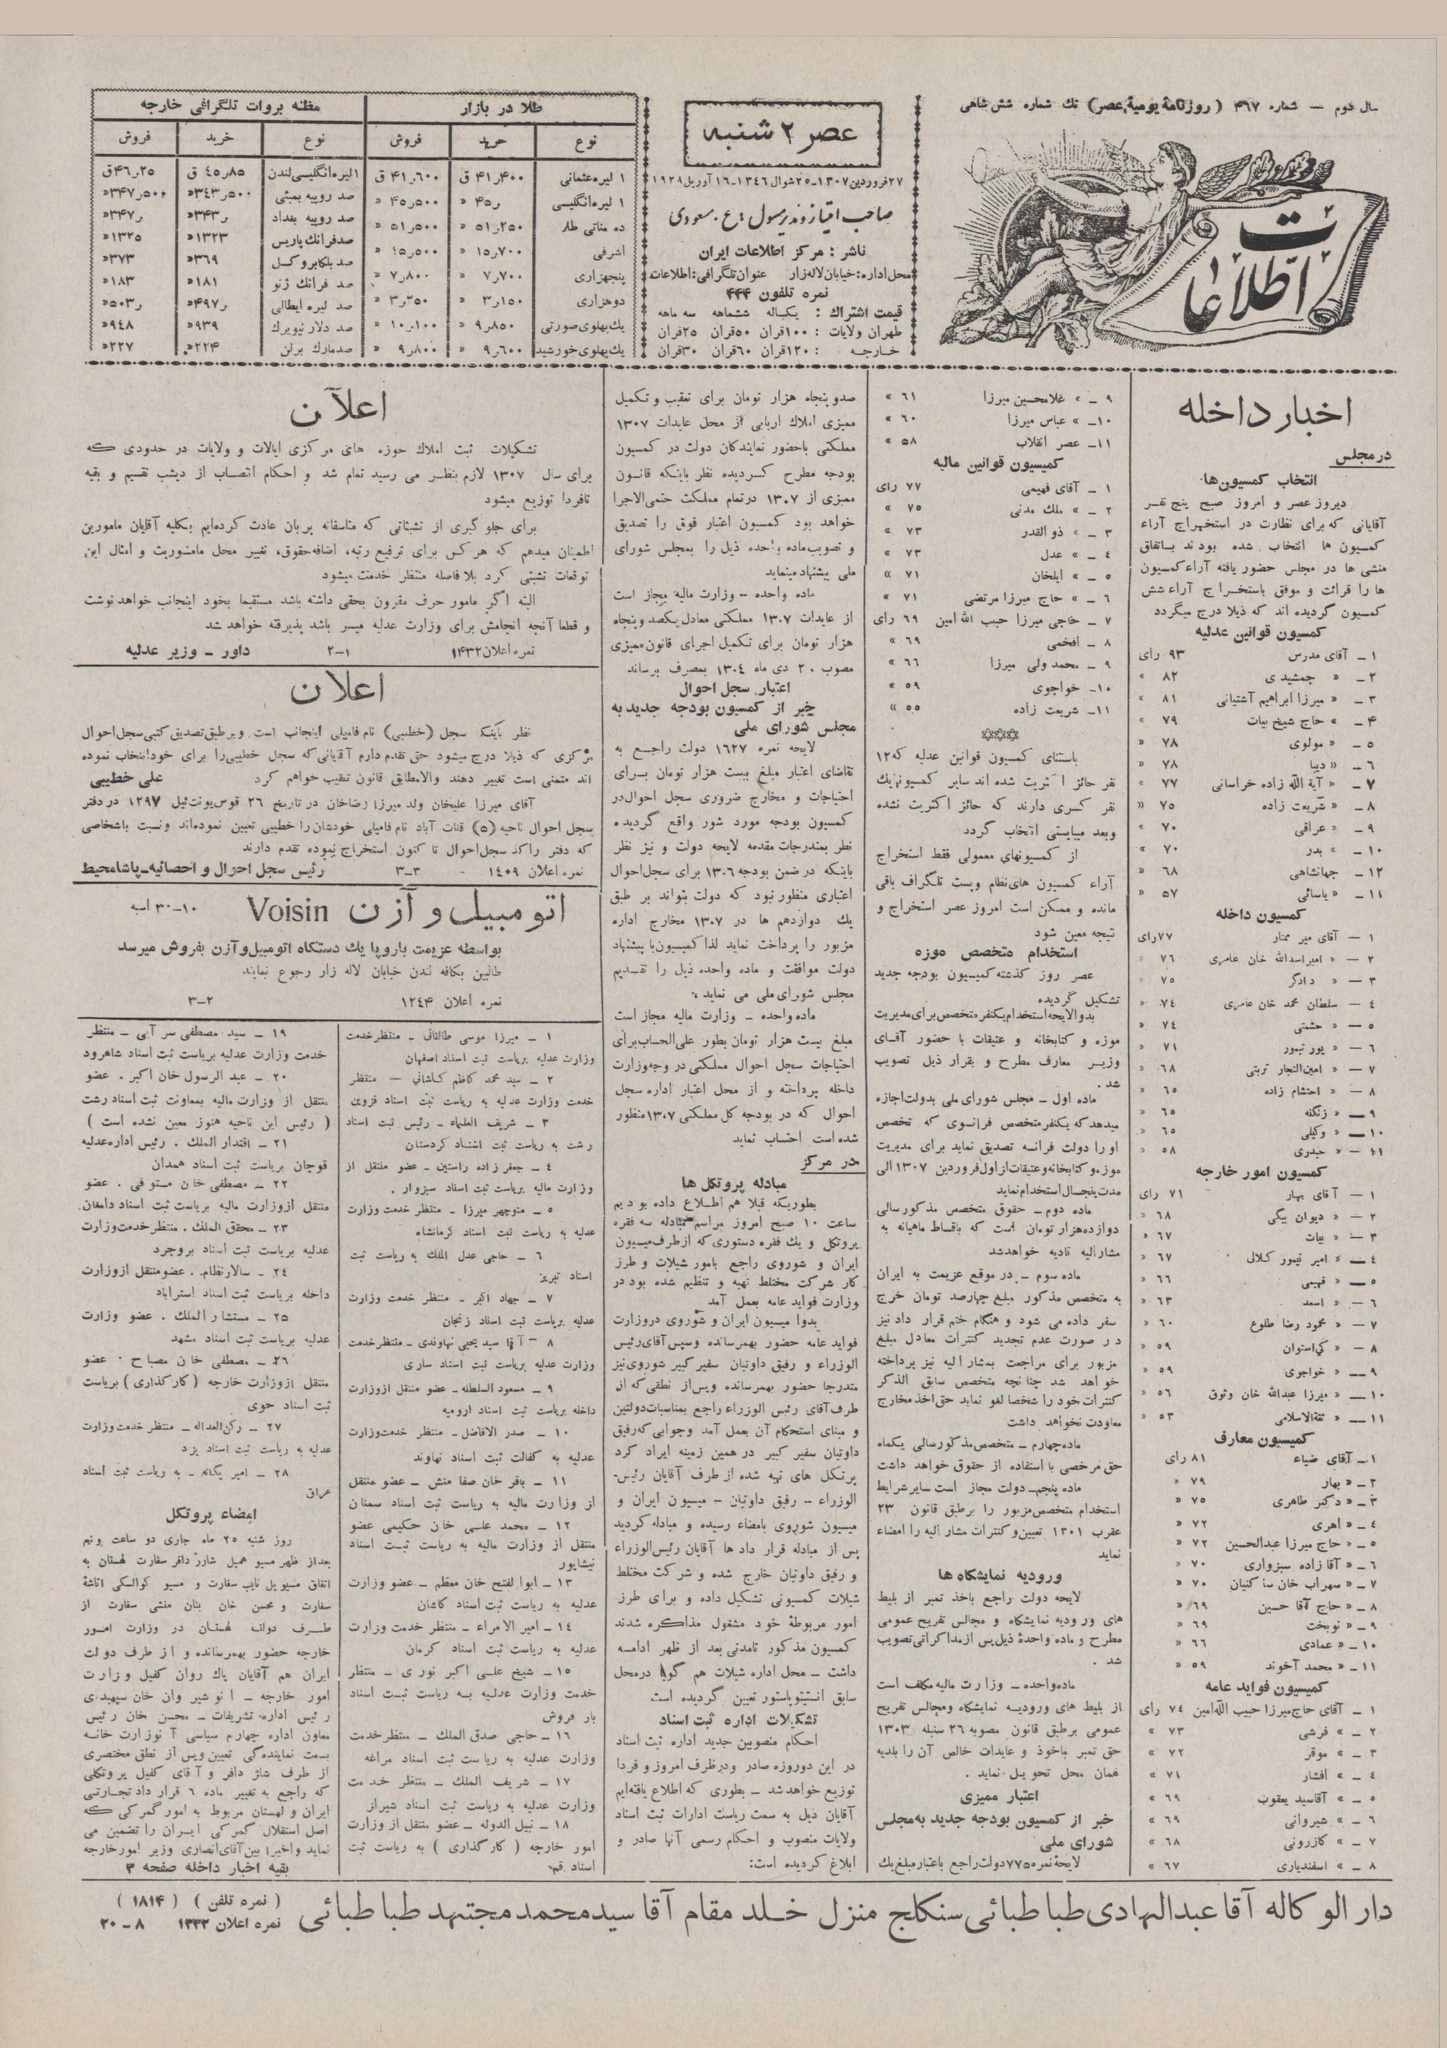 سال دوم — شماره ۴۶۷ (روزنامهٔ یومیهٔ عصر) تك شماره شش شاهی
اطلاعات
عصر ۲ شنبه
۲۷ فروردین ۱۳۰۷-۲۵ شوال ۱۳۴۶-۱۶ آوریل ۱۹۲۸
صاحب امتیاز و مدیر مسول : ع . مسعودی
ناشر : مرکز اطلاعات ایران
محل اداره: خیابان لاله زار عنوان تلگرافی: اطلاعات
نمره تلفون ۴۴۴
قیمت اشتراك : یکساله ششماهه سه ماهه
طهران ولایات : ۱۰۰قران ۵۰قران ۲۵قران
خارجه : ۱۲۰قران ۶۰قران ۳۰قران
طلا در بازار
نوع خرید فروش
۱ لیره عثمانی ۴۱٫۴۰۰ ق ۴۱٫۶۰۰ ق
۱ لیره انگلیسی ۴۵٫ « ۴۵٫۵۰۰ «
ده مناتی طلا ۵۱٫۲۵۰ « ۵۱٫۵۰۰ «
اشرفی ۱۵٫۷۰۰ « ۱۵٫۵۰۰ «
پنجهزاری ۷٫۷۰۰ « ۷٫۸۰۰ «
دوهزاری ۳٫۱۵۰ « ۳٫۲۵۰ «
یك پهلوی صورتی ۹٫۸۵۰ « ۱۰٫۱۰۰ «
یك پهلوی خورشید ۹٫۶۰۰ « ۹٫۸۰۰ «
مظنه بروات تلگرافی خارجه
نوع خرید فروش
۱لیره انگلیسی لندن ۴۵٫۸۵ ق ۴۶٫۲۵ق
صد روپیه بمبئی ۳۴۳٫۵۰۰« ۳۴۷٫۵۰۰«
صد روپیه بغداد ۳۴۳٫« ۳۴۷٫«
صدفرانك پاریس ۱۳۲۳« ۱۳۲۵«
صد بلکا بروکسل ۳۶۹« ۳۷۳«
صد فرانك ژنو ۱۸۱« ۱۸۳«
صد لیره ایطالی ۴۹۷٫« ۵۰۳٫«
صد دلار نیویرك ۹۳۹« ۹۴۸«
صدمارك برلن ۲۲۴« ۲۲۷«
اخبار داخله
در مجلس
انتخاب کمسیون ها
دیروز عصر و امروز صبح پنج نفر
آقایانی که برای نظارت در استخراج آراء
کمسیون ها انتخاب شده بودند باتفاق
منشی ها در مجلس حضور یافته آراء کمسیون
ها را قرائت و موفق باستخراج آراء شش
کمسیون گردیده اند که ذیلا درج میگردد
کمسیون قوانین عدلیه
۱ – آقای مدرس ۹۳ رای
۲ – « جمشیدی ۸۲ »
۳ – « میرزا ابراهیم آشتیانی ۸۱ »
۴ – » حاج شیخ بیات ۷۹ »
۵ – « مولوی ۷۸ »
۶ – « دیبا ۷۸ »
۷ – « آیة الله زاده خراسانی ۷۷ »
۸ – « شریعت زاده ۷۵ »
۹ – « عراقی ۷۰ »
۱۰ – » بدر ۷۰ »
۱۲ – جهانشاهی ۶۸ »
۱۱ – « یاسائی ۵۷ »
کمسیون داخله
۱ – آقای میر ممتاز ۷۷رای
۲ – « امیر اسدالله خان عامری ۷۶ »
۳ – « دادگر ۷۵ »
۴ – سلطان محمد خان عامری ۷۴ »
۵ – « حشمتی ۷۴ »
۶ – « پور تیمور ۷۱ »
۷ – « امین التجار تربتی ۶۸ »
۸ – « احتشام زاده ۶۵ »
۹ – « زنگنه ۶۵ »
۱۰ – « وکیلی ۶۵ »
۱۱ – « حیدری ۵۸ »
کمسیون امور خارجه
۱ – آقای بهار ۷۱ رای
۲ – « دیوان بیگی ۶۸ »
۳ – « بیات ۶۷ »
۴ – « امیر تیمور کلالی ۶۷ »
۵ – « فهیمی ۶۶ »
۶ – « اسعد ۶۳ »
۷ – « محمود رضا طلوع ۶۰ »
۸ – « کی استوان ۵۹ »
۹ – « خواجوی ۵۹ »
۱۰ – « میرزا عبدالله خان وثوق ۵۶ »
۱۱ – « ثقةالاسلامی ۵۳ »
کمیسیون معارف
۱ – آقای ضیاء ۸۱ رای
۲ – « بهار ۷۹ »
۳ – « دکتر طاهری ۷۵ »
۴ – « اهری ۷۲ »
۵ – « حاج میرزا عبدالحسین ۷۲ »
۶ – « آقا زاده سبزواری ۷۰ »
۷ – « سهراب خان ساکنیان ۷۰ »
۸ – « حاج آقا حسین ۶۹ »
۹ – « نوبخت ۶۹ »
۱۰ – « عمادی ۶۶ »
۱۱ – « محمد آخوند ۵۹ »
کمیسیون فواید عامه
۱ – آقای حاج میرزا حبیب الله امین ۷۴ رای
۲ – « فرشی ۷۳ »
۳ – » موقر ۷۲ »
۴ – « افشار ۷۱ »
۵ – « آقاسید یعقوب ۶۹ »
۶ – « شیروانی ۶۹ »
۷ – « کازرونی ۶۸ »
۸ – » اسفندیاری ۶۷ »
۹ – » غلامحسین میرزا ۶۱ »
۱۰– » عباس میرزا ۶۰ »
۱۱– عصر انقلاب ۵۸ »
کمیسیون قوانین مالیه
۱ – آقای فهیمی ۷۷ رای
۲ – » ملك مدنی ۷۵ »
۳ – » ذو القدر ۷۳ »
۴ – » عدل ۷۳ »
۵ – » ایلخان ۷۱ »
۶ – » حاج میرزا مرتضی ۷۱ »
۷ – حاجی میرزا حبیب الله امین ۶۹ رای
۸ – افخمی ۶۹ »
۹ – محمد ولی میرزا ۶۶ »
۱۰– خواجوی ۵۹ »
۱۱– شریعت زاده ۵۵ »
باستثنای کمسیون قوانین عدلیه که ۱۲
نفر حائز اکثریت شده اند سایر کمسیونها یك
نفر کسری دارند که حائز اکثریت نشده
وبعد میبایستی انتخاب گردد
از کمسیونهای معمولی فقط استخراج
آراء کمسیون های نظام وپست تلگراف باقی
مانده و ممکن است امروز عصر استخراج و
نتیجه معین شود
استخدام متخصص موزه
عصر روز گذشته کمیسیون بودجه جدید
تشکیل گردیده
بدو لایحه استخدام یکنفر متخصص برای مدیریت
موزه و کتابخانه و عتیقات با حضور آقای
وزیر معارف مطرح و بقرار ذیل تصویب
شد .
ماده اول – مجلس شورای ملی بدولت اجازه
میدهد که یکنفر متخصص فرانسوی که تخصص
او را دولت فرانسه تصدیق نماید برای مدیریت
موزه و کتابخانه و عتیقات از اول فروردین ۱۳۰۷ الی
مدت پنجسال استخدام نماید
ماده دوم – حقوق متخصص مذکور سالی
دوازده هزار تومان است که باقساط ماهیانه به
مشارالیه تادیه خواهد شد
ماده سوم – در موقع عزیمت به ایران
به متخصص مذکور مبلغ چهارصد تومان خرج
سفر داده می شود و هنگام ختم قرار داد نیز
در صورت عدم تجدید کنترات معادل مبلغ
مزبور برای مراجعت بمشار الیه نیز پرداخته
خواهد شد چنانچه متخصص سابق الذکر
کنترات خود را شخصا لغو نماید حق اخذ مخارج
معاودت نخواهد داشت
ماده چهارم – متخصص مذکور سالی یکماه
حق مرخصی با استفاده از حقوق خواهد داشت
ماده پنجم– دولت مجاز است سایر شرایط
استخدام متخصص مزبور را برطبق قانون ۲۳
عقرب ۱۳۰۱ تعیین و کنترات مشار الیه را امضاء
نماید
ورودیه نمایشگاه ها
لایحه دولت راجع باخذ تمبر از بلیط
های ورودیه نمایشگاه و مجالس تفریح عمومی
مطرح و ماده واحدهٔ ذیل پس از مذاکراتی تصویب
شد .
ماده واحده – وزارت مالیه مکلف است
از بلیط های ورودیه نمایشگاه ومجالس تفریح
عمومی برطبق قانون مصوبه ۲۶ سنبله ۱۳۰۳
حق تمبر ماخوذ و عایدات خالص آن را بلدیه
همان محل تحویل نماید .
اعتبار ممیزی
خبر از کمسیون بودجه جدید به مجلس
شورای ملی
لایحهٔ نمره ۷۷۵۰ دولت راجع باعتبار مبلغ یك
صدو پنجاه هزار تومان برای تعقیب و تکمیل
ممیزی املاك اربابی از محل عایدات ۱۳۰۷
مملکتی باحضور نمایندکان دولت در کمسیون
بودجه مطرح گردیده نظر باینکه قانون
ممیزی از ۱۳۰۷ درتمام مملکت حتمی الاجرا
خواهد بود کمسیون اعتبار فوق را تصدیق
و تصویب ماده واحده ذیل را بمجلس شورای
ملی پیشنهاد مینماید
ماده واحده – وزارت مالیه مجاز است
از عایدات ۱۳۰۷ مملکتی معادل یکصد و پنجاه
هزار تومان برای تکمیل اجرای قانون ممیزی
مصوب ۲۰ دی ماه ۱۳۰۴ بمصرف برساند
اعتبار سجل احوال
خبر از کمسیون بودجه جدید به
مجلس شورای ملی
لایحه نمره ۱۶۲۷ دولت راجع به
تقاضای اعتبار مبلغ بیست هزار تومان برای
احتیاجات و مخارج ضروری سجل احوال در
کمسیون بودجه مورد شور واقع گردیده
نظر بمندرجات مقدمه لایحه دولت و نیز نظر
باینکه در ضمن بودجه ۱۳۰۶ برای سجل احوال
اعتباری منظور نبود که دولت بتواند بر طبق
یك دوازدهم ها در ۱۳۰۷ مخارج اداره
مزبور را پرداخت نماید لذا کمسیون با پیشنهاد
دولت موافقت و ماده واحده ذیل را تقدیم
مجلس شورای ملی می نماید .
ماده واحده – وزارت مالیه مجاز است
مبلغ بیست هزار تومان بطور علی الحساب برای
احتیاجات سجل احوال مملکتی در وجه وزارت
داخله پرداخته و از محل اعتبار اداره سجل
احوال که در بودجه کل مملکتی ۱۳۰۷ منظور
شده است احتساب نماید
در مرکز
مبادله پروتکل ها
بطوریکه قبلا هم اطلاع داده بودیم
ساعت ۱۰ صبح امروز مراسم مبادله سه فقره
پروتکل و یك فقره دستوری که از طرف میسیون
ایران و شوروی راجع بامور شیلات و طرز
کار شرکت مختلط تهیه و تنظیم شده بود در
وزارت فواید عامه بعمل آمد
بدوا میسیون ایران و شوروی در وزارت
فواید عامه حضور بهمرسانده وسپس آقای رئیس
الوزراء و رفیق داوتیان سفیر کبیر شوروی نیز
متدرجا حضور بهمرسانده وپس از نطقی که از
طرف آقای رئیس الوزراء راجع بمناسبات دولتین
و مبنای استحکام آن بعمل آمد وجوابی که رفیق
داوتیان سفیر کبیر در همین زمینه ایراد کرد
پرتکل های تهیه شده از طرف آقایان رئیس‌
الوزراء – رفیق داوتیان – میسیون ایران و
میسیون شوروی بامضاء رسیده و مبادله گردید
پس از مبادله قرار داد ها آقایان رئیس الوزراء
و رفیق داوتیان خارج شده و شرکت مختلط
شیلات کمسیونی تشکیل داده و برای طرز
امور مربوطهٔ خود مشغول مذاکره شدند
کمسیون مذکور تامدتی بعد از ظهر ادامه
داشت – محل اداره شیلات هم گویا درمحل
سابق انستیتو پاستور تعیین گردیده است
تشکیلات اداره ثبت اسناد
احکام منصوبین جدید اداره ثبت اسناد
در این دوروزه صادر ودرظرف امروز و فردا
توزیع خواهد شد – بطوری که اطلاع یافته ایم
آقایان ذیل به سمت ریاست ادارات ثبت اسناد
ولایات منصوب و احکام رسمی آنها صادر و
ابلاغ کردیده است:
اعلان
تشکیلات ثبت املاك حوزه های مرکزی ایالات و ولایات در حدودی که
برای سال ۱۳۰۷ لازم بنظر می رسید تمام شد و احکام انتصاب از دیشب تقسیم و بقیه
تافردا توزیع میشود
برای جلو گیری از تشبثاتی که متاسفانه بربان عادت کرده ایم بکلیه آقایان مامورین
اطمینان میدهم که هر کس برای ترفیع رتبه، اضافه حقوق، تغییر محل مامشوریت و امثال این
توقعات تشبثی کرد بلا فاصله منتظر خدمت میشود
البته اگر مامور حرف مقرون بحقی داشته باشد مستقیما بخود اینجانب خواهد نوشت
و قطعا آنچه انجامش برای وزارت عدلیه میسر باشد پذیرفته خواهد شد
نمره اعلان ۱۴۳۲ ۲–۱ داور – وزیر عدلیه
اعلان
نظر باینکه سجل (خطیبی) نام فامیلی اینجانب است وبرطبق تصدیق کتبی سجل احوال
مرکزی که ذیلا درج میشود حق تقدم دارم آقایانی که سجل خطیبی را برای خود انتخاب نموده
اند متمنی است تغییر دهند والا مطابق قانون تعقیب خواهم کرد علی خطیبی
آقای میرزا علیخان ولد میرزا رضاخان در تاریخ ۲۶ قوس یونت ئیل ۱۲۹۷ در دفتر
سجل احوال ناحیه (۵) قنات آباد نام فامیلی خودشان را خطیبی تعیین نموده اند ونسبت باشخاصی
که دفتر راکد سجل احوال تا کنون استخراج نموده تقدم دارند
نمره اعلان ۱۴۰۹ ۳–۳ رئیس سجل احوال و احصائیه–پاشامحیط
اتومبیل و آزن Voisin ۱۰–۳۰ اسبه
بواسطه عزیمت باروپا یك دستکاه اتومبیل و آزن بفروش میرسد
طالبین بکافه لندن خیابان لاله زار رجوع نمایند
نمره اعلان ۱۲۴۴ ۳–۲
۱ – میرزا موسی طالقانی – منتظر خدمت
وزارت عدلیه به ریاست ثبت اسناد اصفهان
۲ – سید محمد کاظم کاشانی – منتظر
خدمت وزارت عدلیه به ریاست ثبت اسناد قزوین
۳ – شریف العلماء – رئیس ثبت اسناد
رشت به ریاست ثبت اسناد کردستان
۴ – جعفر زاده راستین – عضو منتقل از
وزارت مالیه بریاست ثبت اسناد سبزوار .
۵ – منوچهر میرزا – منتظر خدمت وزارت
عدلیه به ریاست ثبت اسناد کرمانشاه
۶ – حاجی عدل الملك به ریاست ثبت
اسناد تبریز
۷ – جهاد اکبر – منتظر خدمت وزارت
عدلیه بریاست ثبت اسناد زنجان
۸ – آقا سید یحیی نهاوندی – منتظر خدمت
وزارت عدلیه بریاست ثبت اسناد ساری
۹ – مسعود السلطنه – عضو منتقل از وزارت
داخله بریاست ثبت اسناد ارومیه
۱۰ – صدر الافاضل – منتظر خدمت وزارت
عدلیه به کفالت ثبت اسناد نهاوند
۱۱ – باقر خان صفا منش – عضو منتقل
از وزارت مالیه به ریاست ثبت اسناد سمنان
۱۲ – محمد علی خان حکیمی عضو
منتقل از وزارت مالیه به ریاست ثبت اسناد
نیشابور
۱۳ – ابوا لفتح خان معظم – عضو وزارت
عدلیه به ریاست ثبت اسناد کاشان
۱۴ – امیر الامراء – منتظر خدمت وزارت
عدلیه به ریاست ثبت اسناد کرمان
۱۵ – شیخ علی اکبر نوری – منتظر
خدمت وزارت عدلیه به ریاست ثبت اسناد
بار فروش
۱۶ – حاجی صدق الملك – منتظر خدمت
وزارت عدلیه به ریاست ثبت اسناد مراغه
۱۷ – شریف الملك – منتظر خدمت
وزارت عدلیه به ریاست ثبت اسناد شیراز
۱۸ – نبیل الدوله – عضو منتقل از وزارت
امور خارجه (کارگذاری) به ریاست ثبت
اسناد قم
۱۹ – سید مصطفی سرابی – منتظر
خدمت وزارت عدلیه بریاست ثبت اسناد شاهرود
۲۰ – عبد الرسول خان اکبر . عضو
منتقل از وزارت مالیه بمعاونت ثبت اسناد رشت
(رئیس این ناحیه هنوز معین نشده است)
۲۱ – اقتدار الملك . رئیس اداره عدلیه
قوچان بریاست ثبت اسناد همدان
۲۲ – مصطفی خان مستوفی . عضو
منتقل از وزارت مالیه بریاست ثبت اسناد دامغان
۲۳ – محقق الملك . منتظر خدمت وزارت
عدلیه بریاست ثبت اسناد بروجرد
۲۴ – سالار نظام . عضو منتقل از وزارت
داخله بریاست ثبت اسناد استراباد
۲۵ – مستشار الملك . عضو وزارت
عدلیه بریاست ثبت اسناد مشهد
۲۶ – مصطفی خان مصباح . عضو
منتقل از وزارت خارجه (کارگذاری) بریاست
ثبت اسناد خوی
۲۷ – رکن العداله – منتظر خدمت وزارت
عدلیه به ریاست ثبت اسناد یزد
۲۸ – امیر یگانه – به ریاست ثبت اسناد
عراق
امضاء پروتکل
روز شنبه ۲۵ ماه جاری دو ساعت ونیم
بعداز ظهر مسیو همپل شارژ دافر سفارت لهستان به
اتفاق مسیو پل نایب سفارت و مسیو کوالسکی اتاشهٔ
سفارت و محسن خان بنان منشی سفارت از
طرف دولت لهستان در وزارت امور
خارجه حضور بهمرسانده و از طرف دولت
ایران هم آقایان پاك روان کفیل وزارت
امور خارجه – انوشیروان خان سپهبدی
رئیس اداره تشریفات – محسن خان رئیس
معاون اداره چهارم سیاسی آنوزارت خانه
بسمت نمایندگی تعیین وپس از نطق مختصری
از طرف شارژ دافر و آقای کفیل پروتکلی
که راجع به تغییر ماده ۶ قرار داد تجارتی
ایران و لهستان مربوط به امور گمرکی که
اصل استقلال گمرکی ایران را تضمین می
نماید واخیرا بین آقای انصاری وزیر امور خارجه
بقیه اخبار داخله صفحه ۳
دار الوکاله آقا عبدالهادی طباطبائی سنگلج منزل خلد مقام آقا سید محمد مجتهد طباطبائی
(نمره تلفن) (۱۸۱۴)
نمره اعلان ۱۳۳۲ ۸ – ۲۰